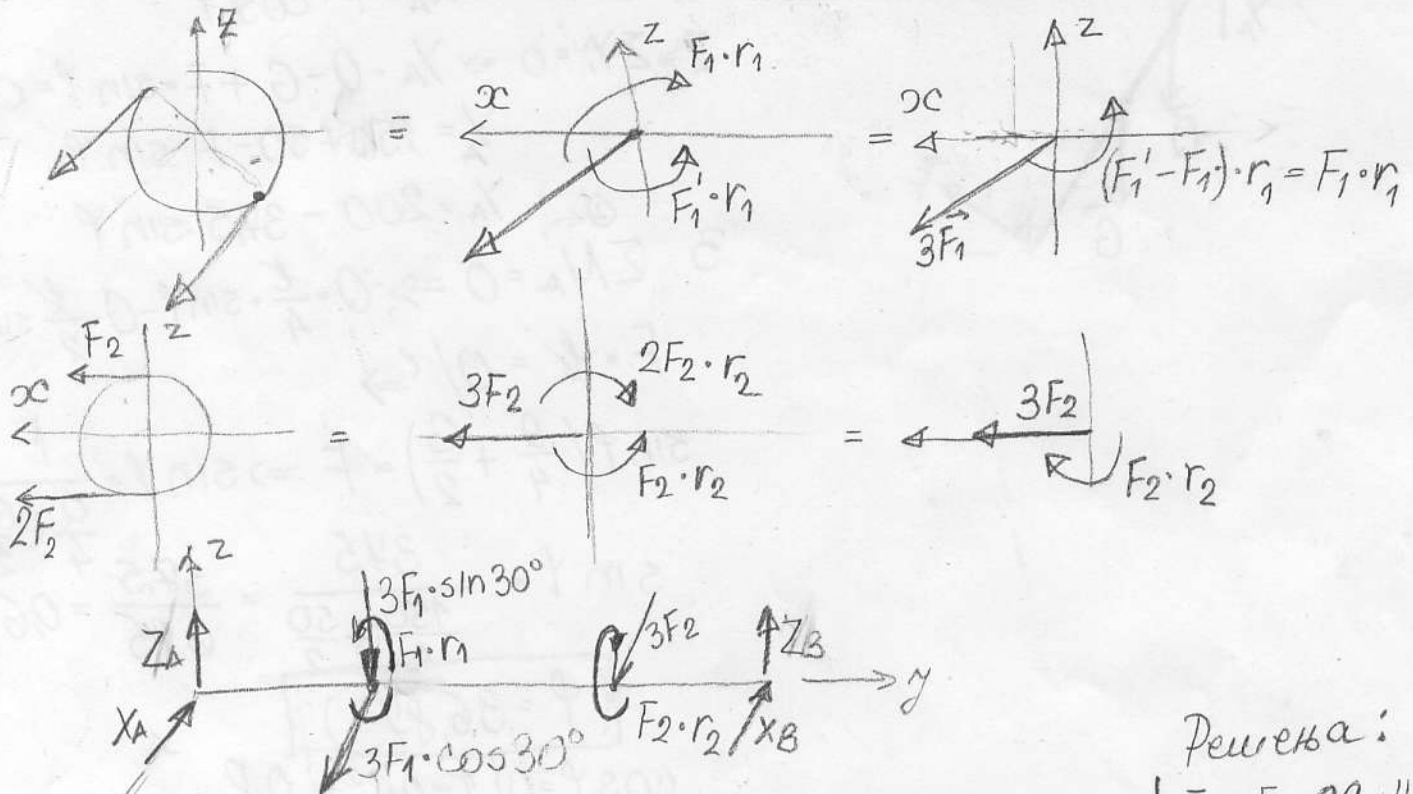 z
x
z
F₁·r₁
F₁'·r₁
x
z
(F₁'-F₁)·r₁ = F₁·r₁
3F₁
=
=
F₂
z
x
2F₂
=
3F₂
2F₂·r₂
F₂·r₂
=
3F₂
F₂·r₂
z
Z_A
X_A
3F₁·sin30°
F₁·r₁
3F₁·cos30°
3F₂
F₂·r₂
Z_B
X_B
y
Решења: